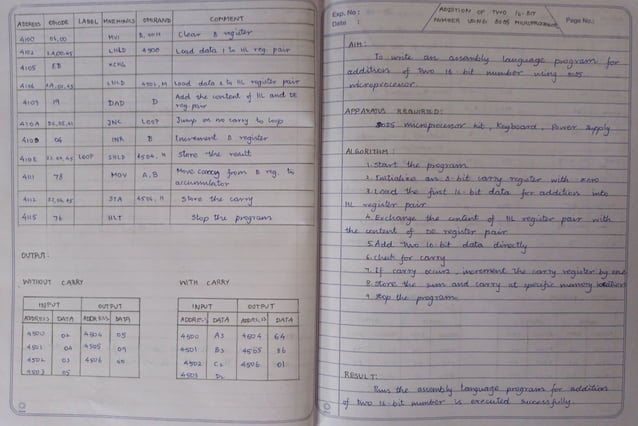 ADDRESS OPCODE LABEL MNEMONICS OPERAND COMMENT
4100 06,00 MVI B, 00H Clear B register
4102 2A,00,45 LHLD 4500 Load data 1 to HL reg. pair
4105 EB XCHG
4106 2A,02,45 LHLD 4502, H Load data 2 to HL register pair
4109 19 DAD D Add the content of HL and DE
reg. pair
410A JNC LOOP Jump on no carry to loop
410D 04 INR B Increment B register
410E 22,04,45 LOOP SHLD 4504, H Store the result
4111 78 MOV A, B Move carry from B reg. to
accumulator
4112 32,06,45 STA 4506, H Store the carry
4115 76 HLT Stop the program
OUTPUT:
WITHOUT CARRY
INPUT OUTPUT
ADDRESS DATA ADDRESS DATA
4500 02 4504 05
4501 04 4505 09
4502 03 4506 00
4503 05
WITH CARRY
INPUT OUTPUT
ADDRESS DATA ADDRESS DATA
4500 A3 4504 64
4501 B3 4505 86
4502 C1 4506 01
4503
Exp. No :
Date :
ADDITION OF TWO 16-BIT
NUMBER USING 8085 MICROPROCESSOR
Page No.:
AIM:
To write an assembly language program for
addition of two 16-bit number using 8085
microprocessor.
APPARATUS REQUIRED:
8085 microprocessor kit, Keyboard, Power supply
ALGORITHM:
1. Start the program.
2. Initialize an 8-bit carry register with zero
3. Load the first 16-bit data for addition into
HL register pair
4. Exchange the content of HL register pair with
the content of DE register pair
5. Add two 16-bit data directly
6. Check for carry
7. If carry occurs, increment the carry register by one
8. Store the sum and carry at specific memory location
9. Stop the program.
RESULT:
Thus the assembly language program for addition
of two 16-bit number is executed sucessfully.